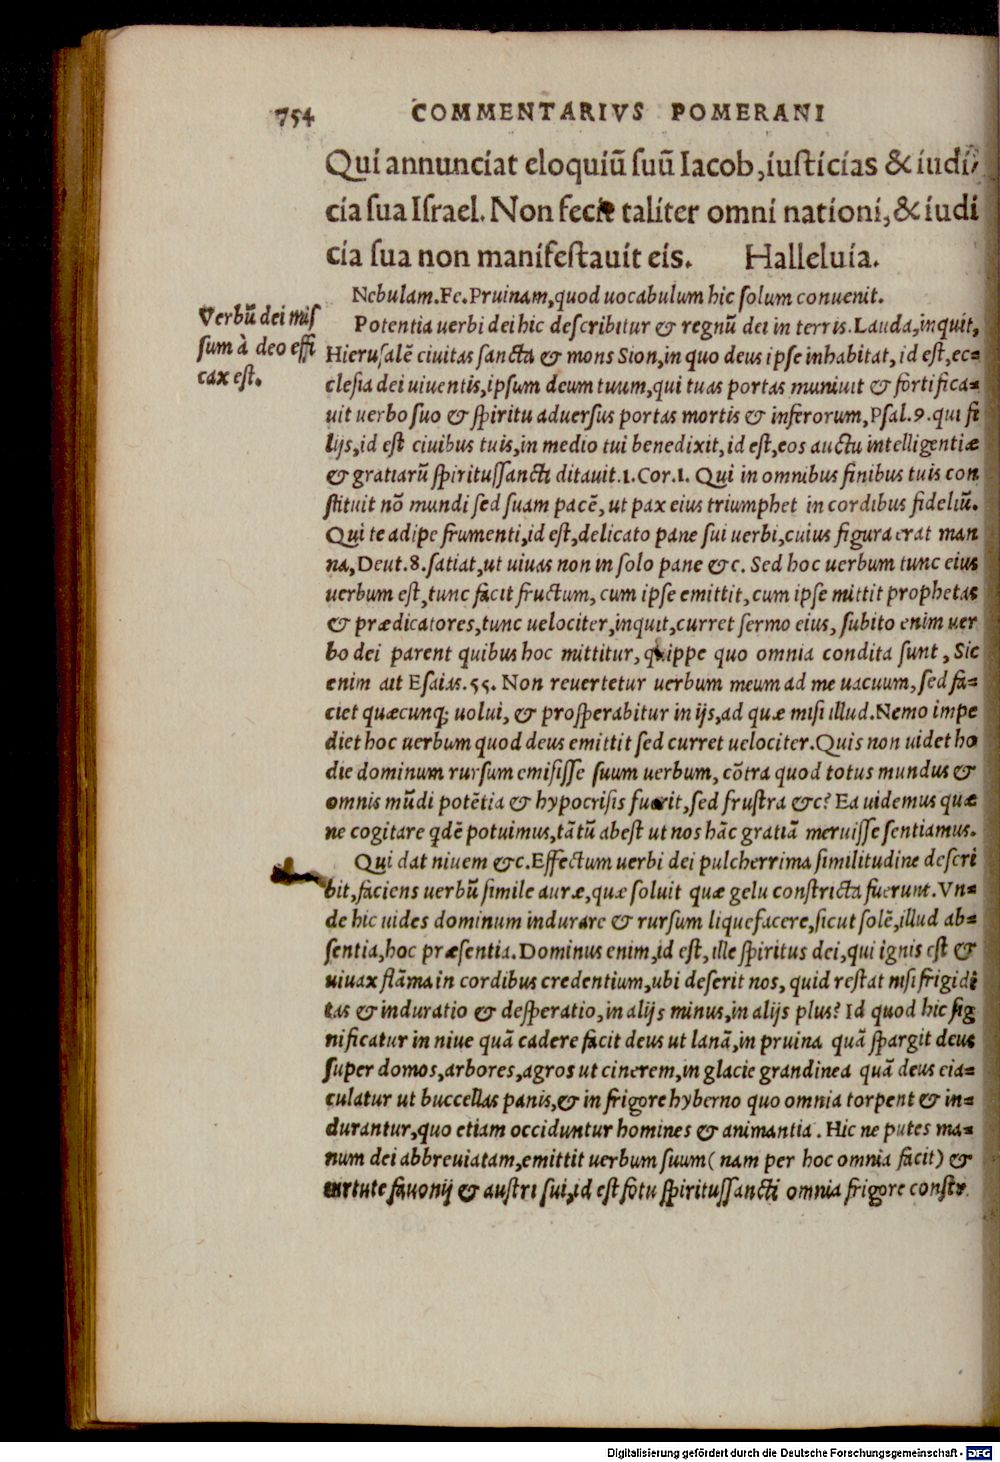 754 COMMENTARIVS POMERANI
Qui annunciat eloquiũ ſuũ Iacob, iuſticias & iudi/
cia ſua Iſrael. Non fecit taliter omni nationi, & iudi
cia ſua non manifeſtauit eis. Halleluia.
Nebulam. Fe. Pruinam, quod uocabulum hic ſolum conuenit.
Verbũ dei miſ
ſum à deo effi
cax eſt.
Potentia uerbi dei hic deſcribitur & regnũ dei in terris. Lauda, inquit,
Hieruſalẽ ciuitas ſancta & mons Sion, in quo deus ipſe inhabitat, id eſt, ec=
cleſia dei uiuentis, ipſum deum tuum, qui tuas portas muniuit & fortifica=
uit uerbo ſuo & ſpiritu aduerſus portas mortis & inferorum, Pſal. 9. qui fi
lijs, id eſt ciuibus tuis, in medio tui benedixit, id eſt, eos auctu intelligentiæ
& gratiarũ ſpirituſſancti ditauit. 1. Cor. 1. Qui in omnibus finibus tuis con
ſtituit nõ mundi ſed ſuam pacẽ, ut pax eius triumphet in cordibus fideliũ.
Qui te adipe frumenti, id eſt, delicato pane ſui uerbi, cuius figura erat man
na, Deut. 8. ſatiat, ut uiuas non in ſolo pane &c. Sed hoc uerbum tunc eius
uerbum eſt, tunc facit fructum, cum ipſe emittit, cum ipſe mittit prophetas
& prædicatores, tunc uelociter, inquit, curret ſermo eius, ſubito enim uer
bo dei parent quibus hoc mittitur, quippe quo omnia condita ſunt, Sic
enim ait Eſaias. 55. Non reuertetur uerbum meum ad me uacuum, ſed fa=
ciet quæcunq; uolui, & proſperabitur in ijs, ad quæ miſi illud. Nemo impe
diet hoc uerbum quod deus emittit ſed curret uelociter. Quis non uidet ho
die dominum rurſum emiſiſſe ſuum uerbum, cõtra quod totus mundus &
omnis mũdi potẽtia & hypocriſis fuerit, ſed fruſtra &c? Ea uidemus quæ
ne cogitare qdẽ potuimus, tãtũ abeſt ut nos hãc gratiã meruiſſe ſentiamus.
Qui dat niuem &c. Effectum uerbi dei pulcherrima ſimilitudine deſcri
bit, faciens uerbũ ſimile auræ, quæ ſoluit quæ gelu conſtricta fuerunt. Vn=
de hic uides dominum indurare & rurſum liquefacere, ſicut ſolẽ, illud ab=
ſentia, hoc præſentia. Dominus enim, id eſt, ille ſpiritus dei, qui ignis eſt &
uiuax flãma in cordibus credentium, ubi deſerit nos, quid reſtat niſi frigidi
tas & induratio & deſperatio, in alijs minus, in alijs plus? Id quod hic ſig
nificatur in niue quã cadere facit deus ut lanã, in pruina quã ſpargit deus
ſuper domos, arbores, agros ut cinerem, in glacie grandinea quã deus eia=
culatur ut buccellas panis, & in frigore hyberno quo omnia torpent & in=
durantur, quo etiam occiduntur homines & animantia. Hic ne putes ma=
num dei abbreuiatam, emittit uerbum ſuum ( nam per hoc omnia facit ) &
uirtute fauonij & auſtri ſui, id eſt fotu ſpirituſſancti omnia frigore
Digitalisierung gefördert durch die Deutsche Forschungsgemeinschaft - DFG